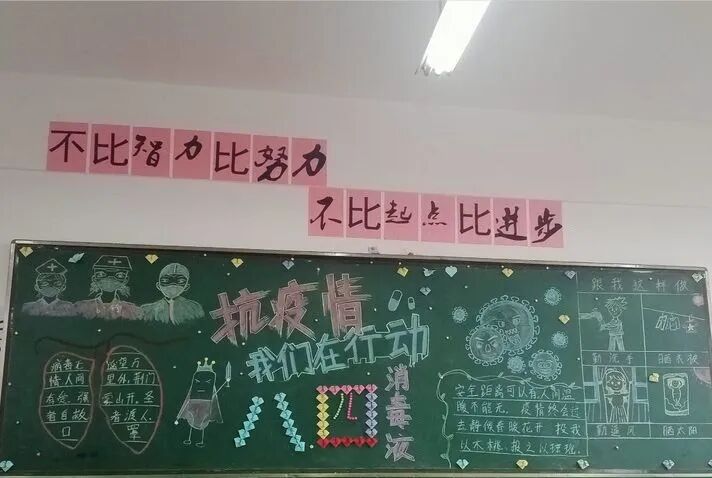 不比智力比努力
不比起点比进步
抗疫情
我们在行动
八四
消毒液
跟我这样做
勤洗手
晒衣被
勤通风
晒太阳
病毒无
情人间
有爱,强
者自救
遥望万
里外,荆门
蒙山开,圣
者渡人
安全距离可以有人间温
暖不能无,疫情终会过
去静候春暖花开 投我
以木桃,报之以琼瑶
口
罩